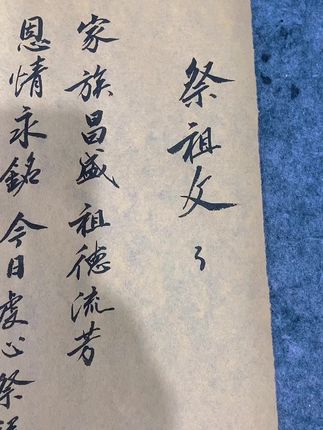 祭祖文
家族昌盛祖德流芳
恩情永銘今日虔心祭